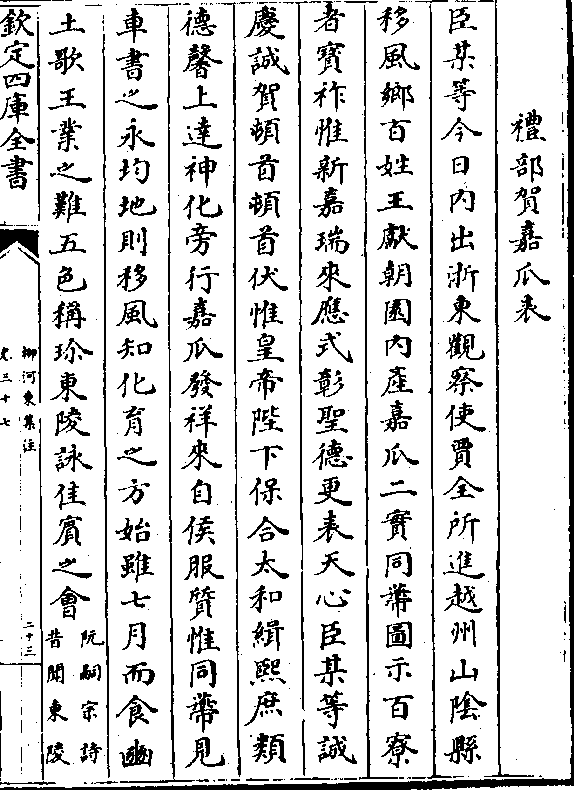 禮部賀嘉瓜表
臣某等今日内出浙東觀察使賈全所進越州山陰縣
移風鄉百姓王獻朝園内產嘉瓜二實同蔕圖示百寮
者寳祚惟新嘉瑞來應式彰聖德更表天心臣某等誠
慶誠賀頓首頓首伏惟皇帝陛下保合太和緝熙庶類
德馨上達神化旁行嘉瓜發祥來自侯服質惟同蔕見
車書之永均地則移風知化育之方始雖七月而食豳
土歌王業之難五色稱珍東陵詠佳賓之會
阮嗣宗詩
昔聞東陵
欽定四庫全書
柳河東集注
卷三十七
二十三